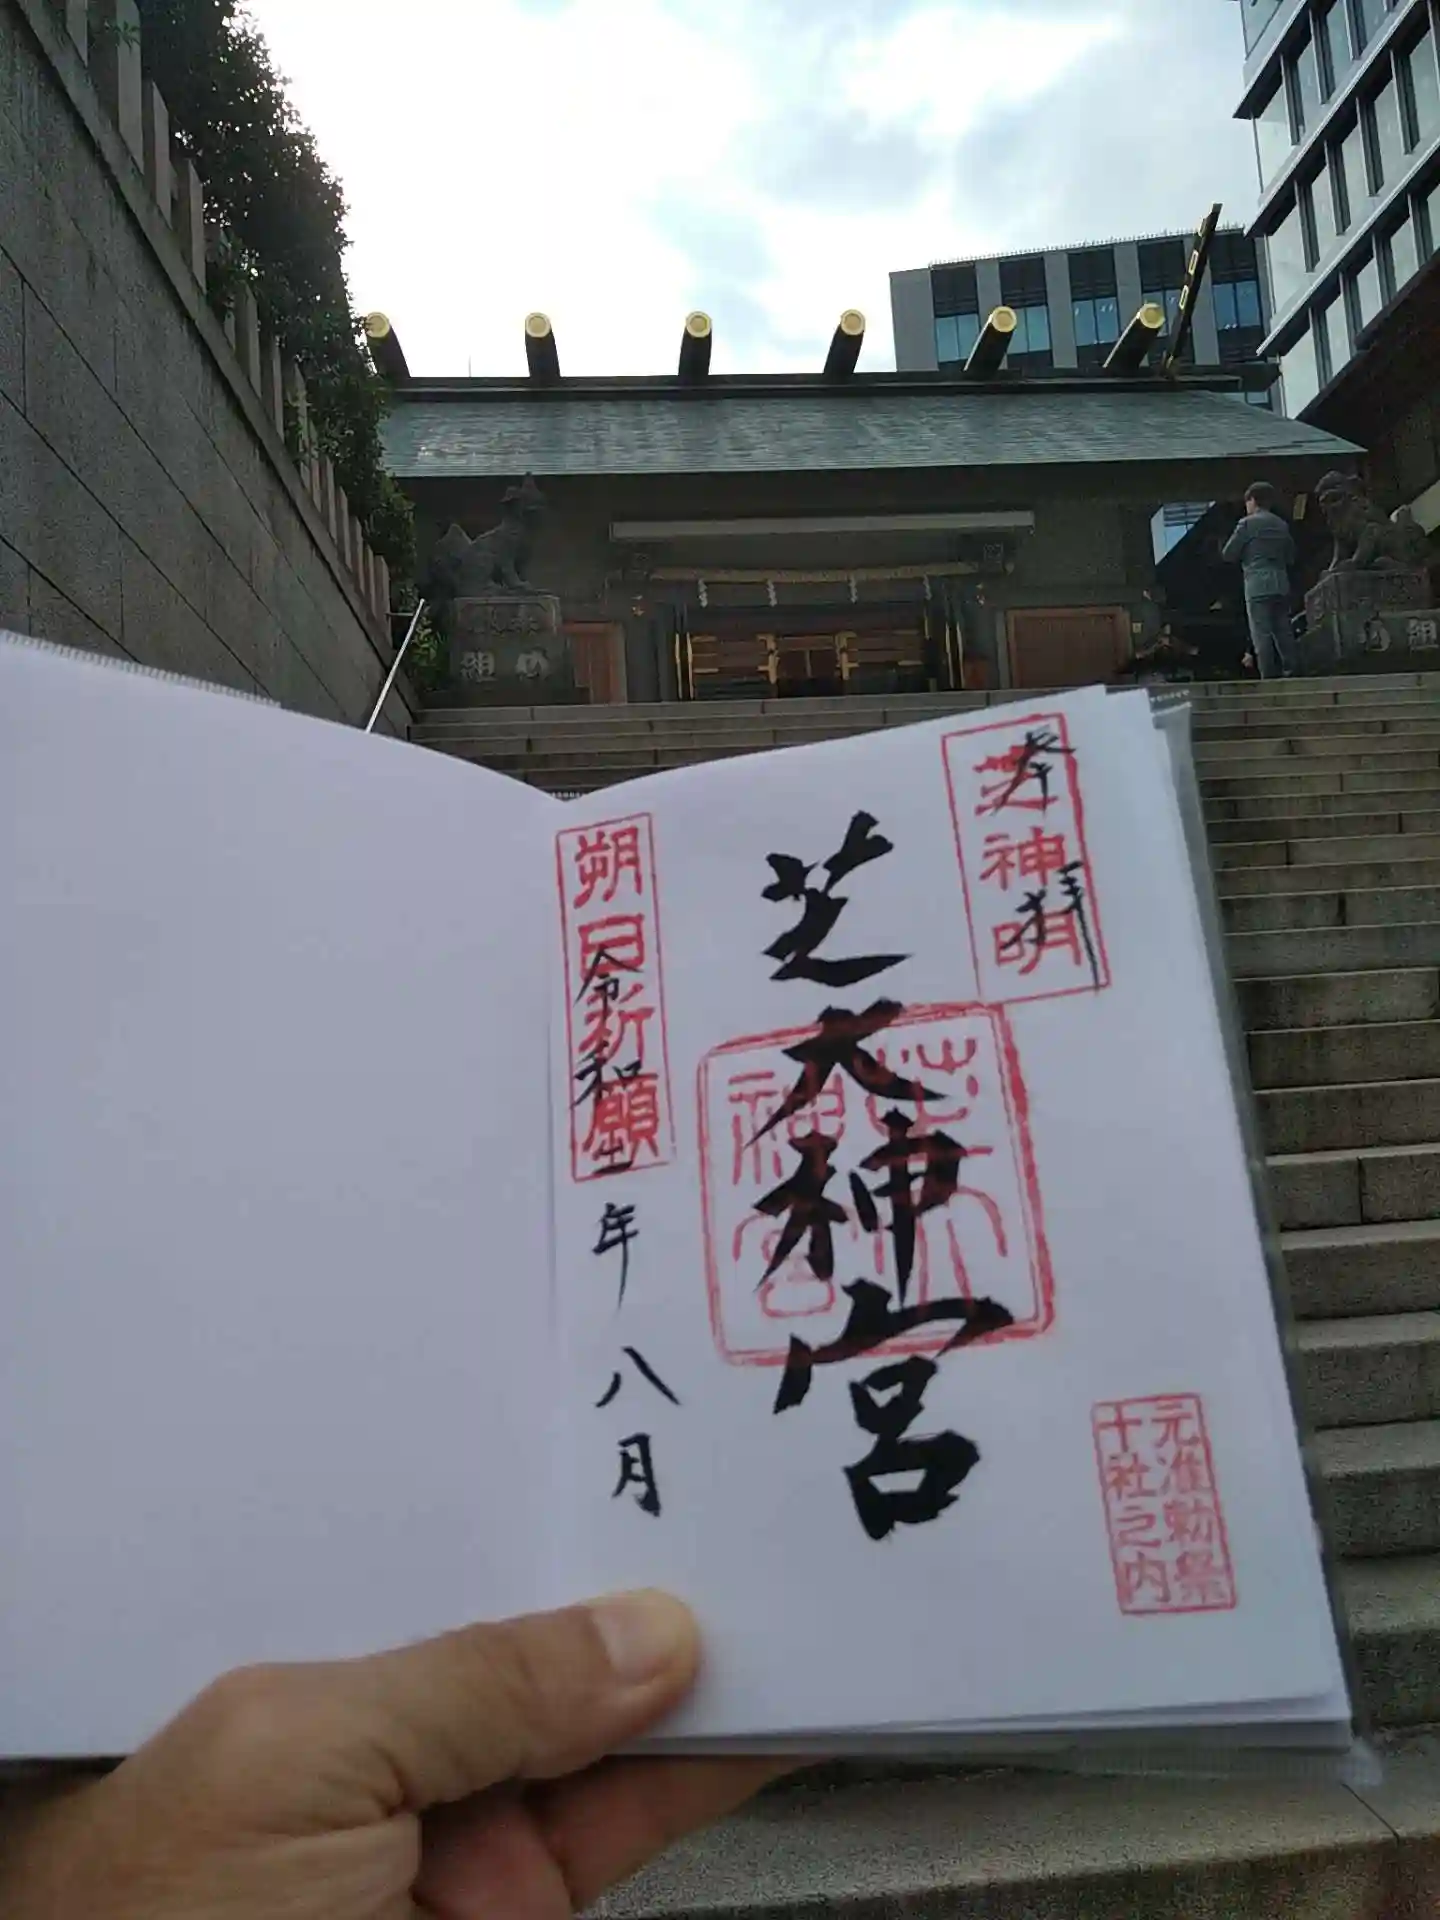 奉拝
芝神明
元准勅祭
十社之内
芝大神宮
芝大
神宮
朔日祈願
令和
年八月
組め
め組